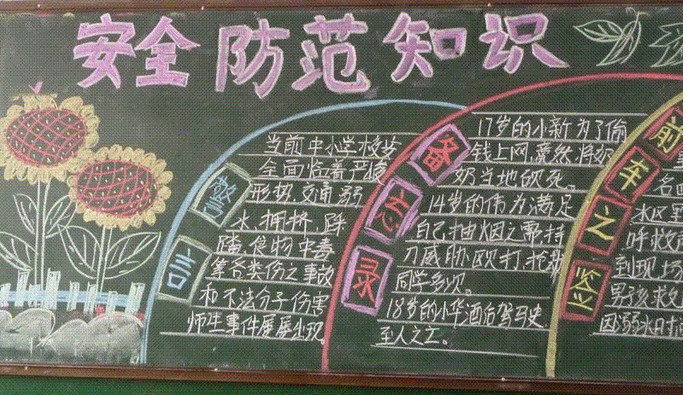 安全防范知识
警言
当前中小学校安
全面临着严峻
形势,交通、溺
水、拥挤、踩
踏、食物中毒
等各类伤之事故
和不法分子伤害
师生事件屡屡出现
备忘录
17岁的小新为了偷
钱上网,竟然将奶
奶当地砍死。
14岁的伟为满足
自己抽烟之需,持
刀威胁、殴打、抢
同学多次。
18岁的小华酒后驾
至人之亡。
前车之鉴
水区
呼救
到现场
男孩救
因溺水时间